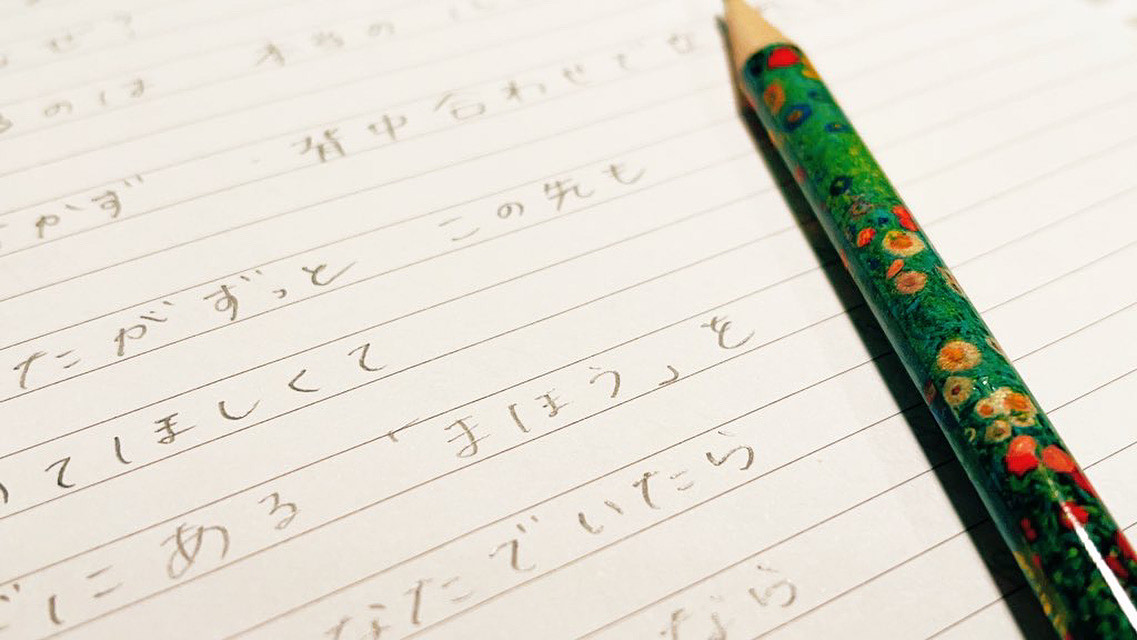 ぜ?
のは 本当の
かず 背中合わせで
たがずっと この先も
てほしくて
にある 「まほう」を
なたでいたら
なら